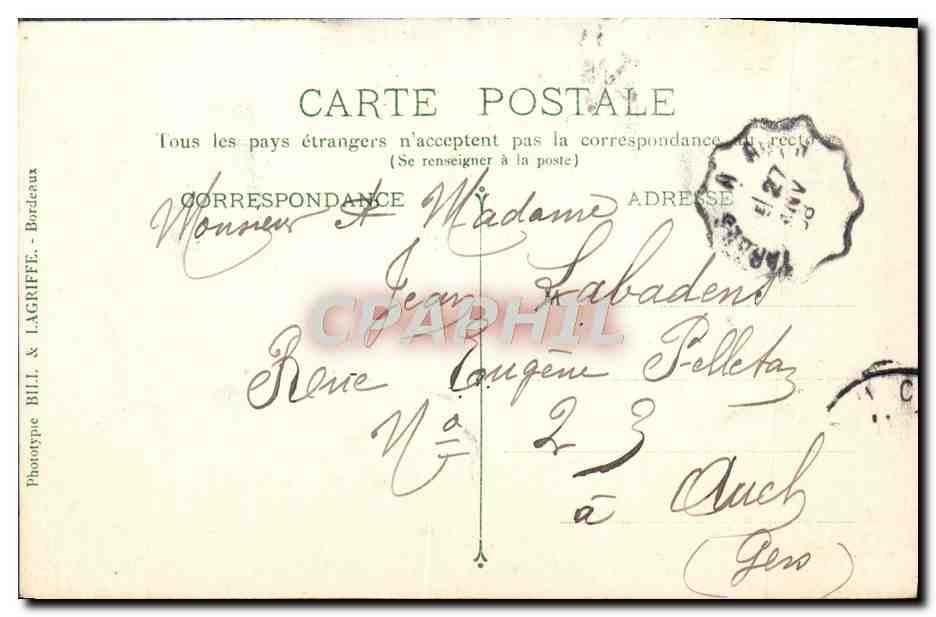 CARTE POSTALE
Tous les pays étrangers n'acceptent pas la correspondance au recto
(Se renseigner à la poste)
CORRESPONDANCE
ADRESSE
Monsieur et Madame
Jean Labadens
Rue Eugène Pelletan
No 23
à Auch
(Gers)
Phototypie BILL & LAGRIFFE. - Bordeaux
27
JANV
TARBES
CPAPHIL